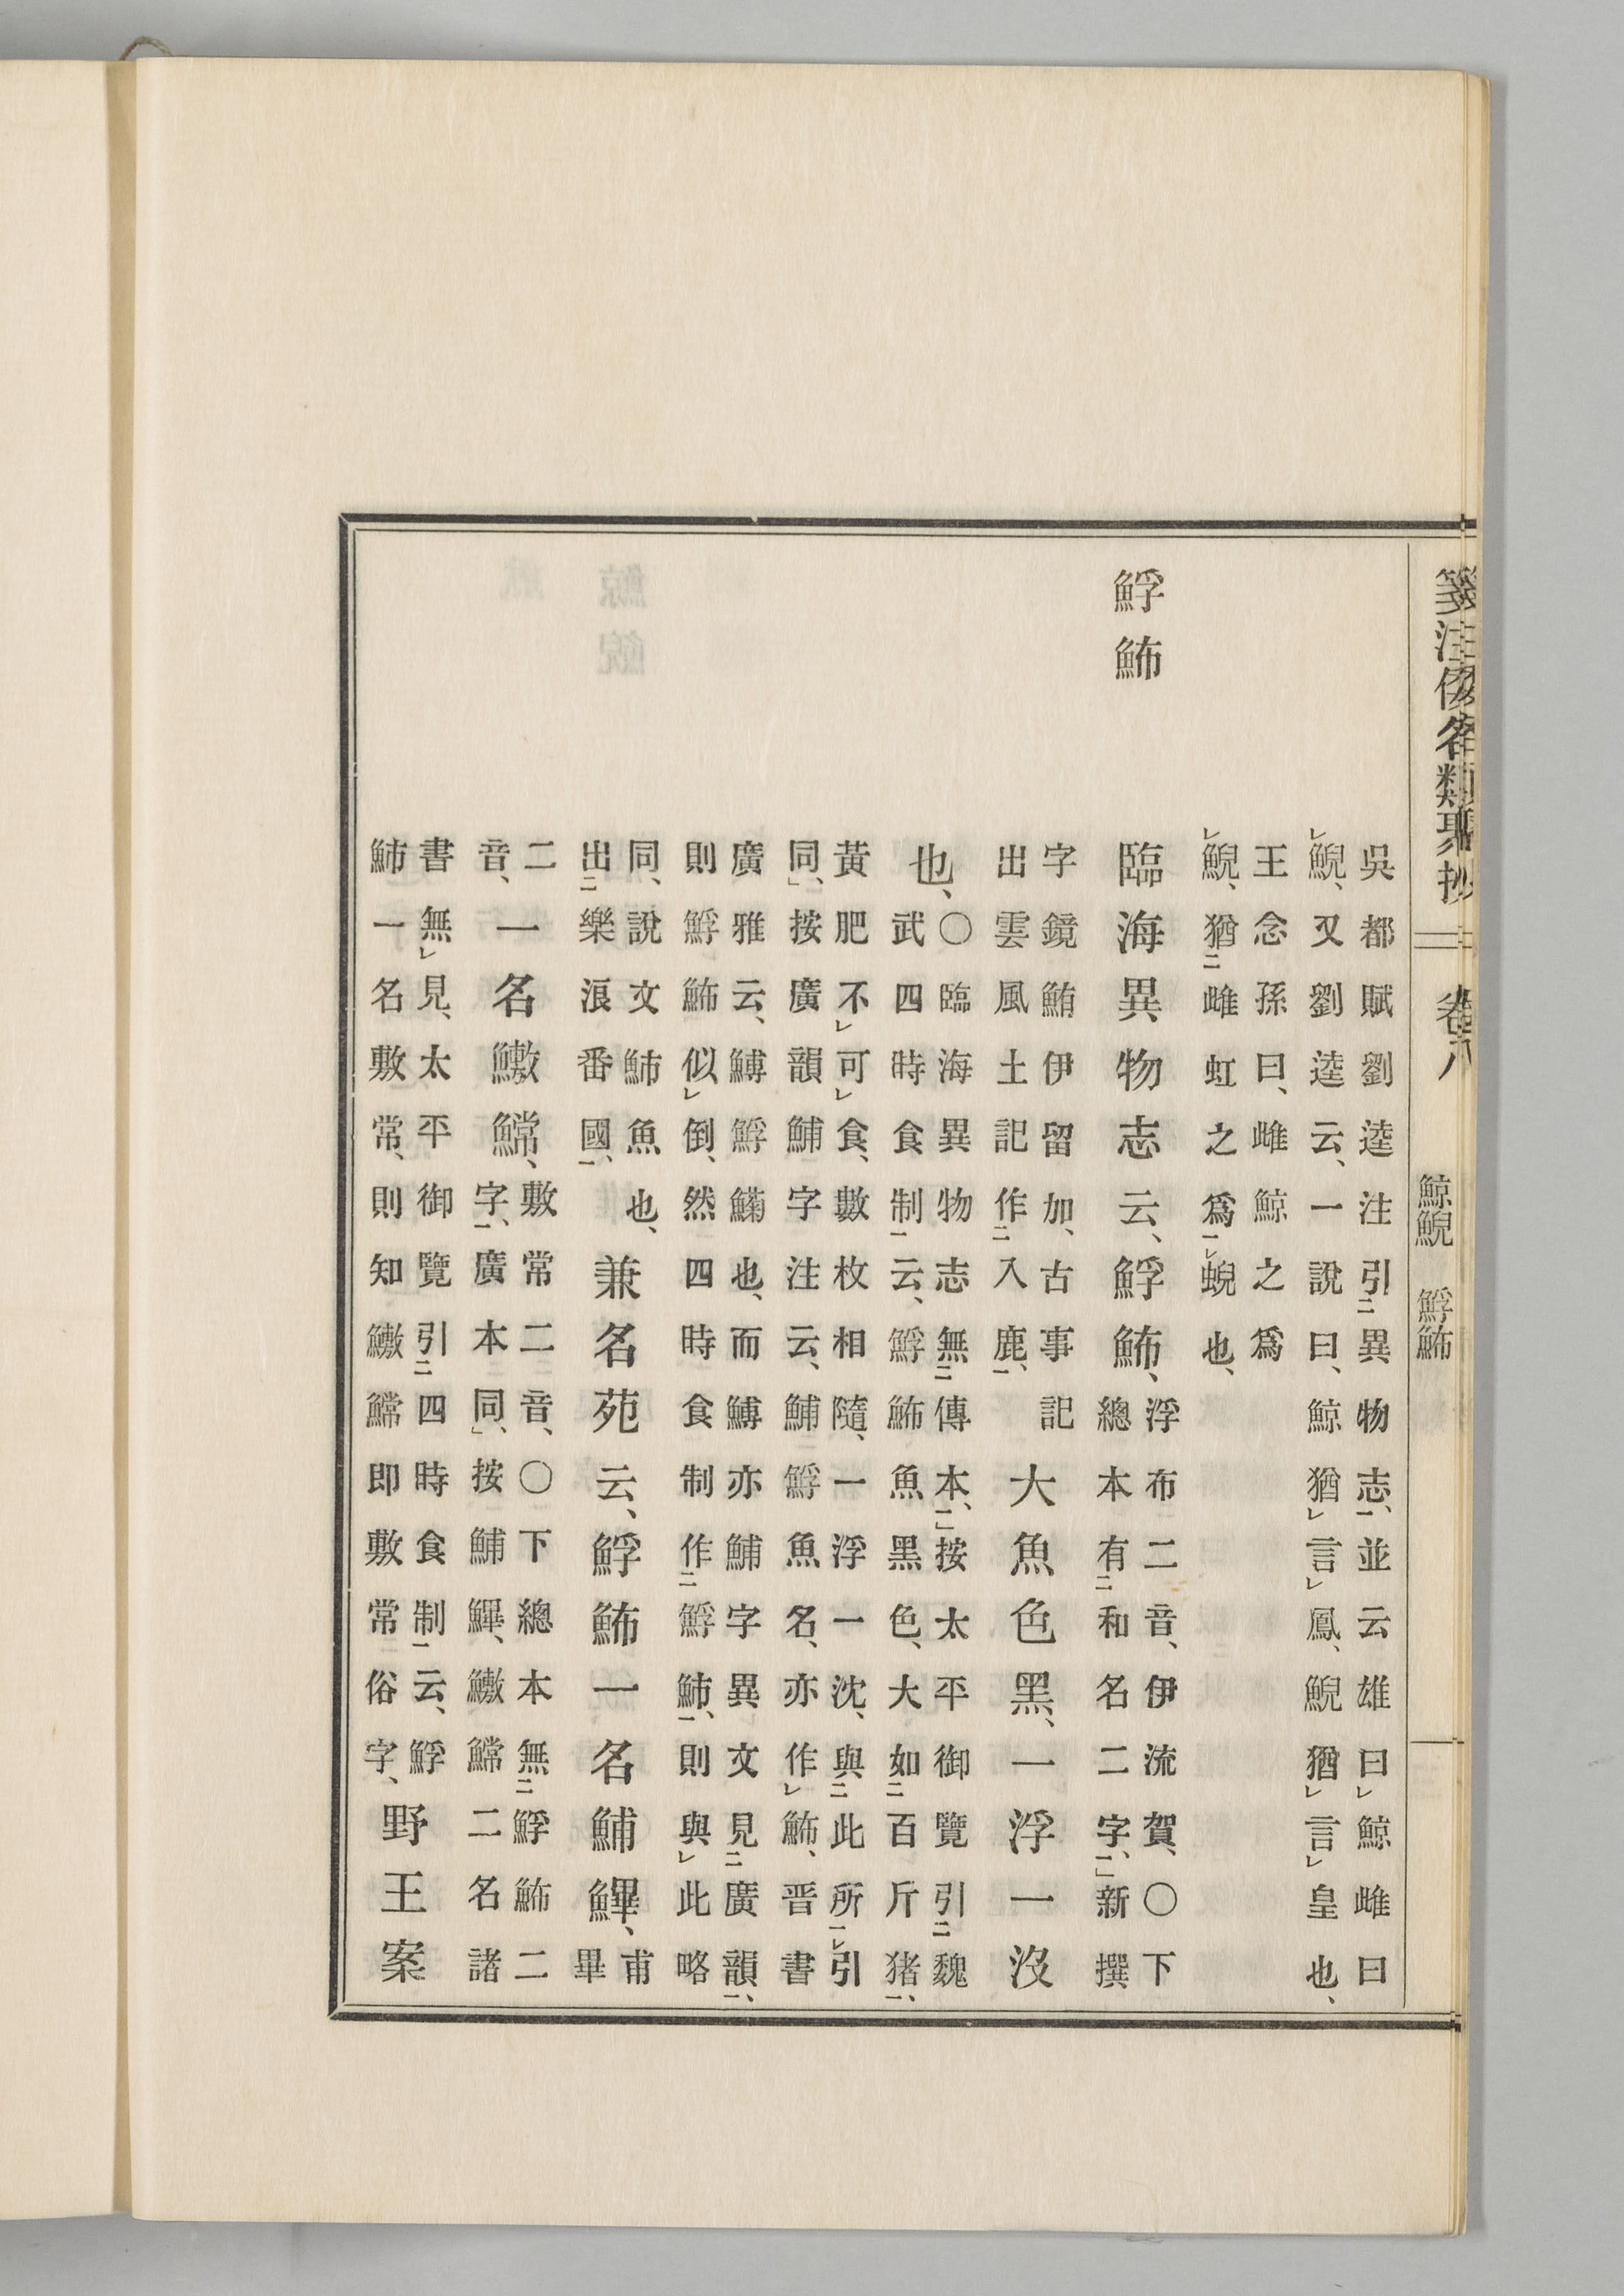 箋注倭名類聚抄 卷八 鯨鯢 䱐䰽
吳都賦劉逵注引㆓異物志㆒、並云雄曰㆑鯨雌曰
㆑鯢、又劉逵云、一說曰、鯨猶㆑言㆑鳳、鯢猶㆑言㆑皇也、
王念孫曰、雌鯨之爲
㆑鯢、猶㆓雌虹之爲㆒㆑蜺也、
䱐䰽
臨海異物志云、䱐䰽、
浮布二音、伊流賀、〇下
總本有㆓和名二字㆒、」新撰
字鏡鮪伊留加、古事記
出雲風土記作㆓入鹿㆒、
大魚色黑、一浮一沒
也、
〇臨海異物志無㆓傳本㆒、」按太平御覽引㆓魏
武四時食制㆒云、䱐䰽魚黑色、大如㆓百斤猪㆒、
黃肥不㆑可㆑食、數枚相隨、一浮一沈、與㆓此所㆒㆑引
同、」按廣韻鯆字注云、鯆䱐魚名、亦作㆑䰽、晋書
廣雅云、⿰魚尃䱐䱡也、而⿰魚尃亦鯆字異文見㆓廣韻㆒、
則䱐䰽似㆑倒、然四時食制作㆓䱐魳㆒、則與㆑此略
同、說文魳魚也、
出㆓樂浪番國㆒、
兼名苑云、䱐䰽一名鯆⿰魚畢、
甫畢
二音、
一名⿰魚敷⿰魚常、
敷常二音、〇下總本無㆓䱐䰽二
字㆒、廣本同、」按鯆⿰魚畢、⿰魚敷⿰魚常二名諸
書無㆑見、太平御覽引㆓四時食制㆒云、䱐
魳一名敷常、則知⿰魚敷⿰魚常即敷常俗字、
野王案